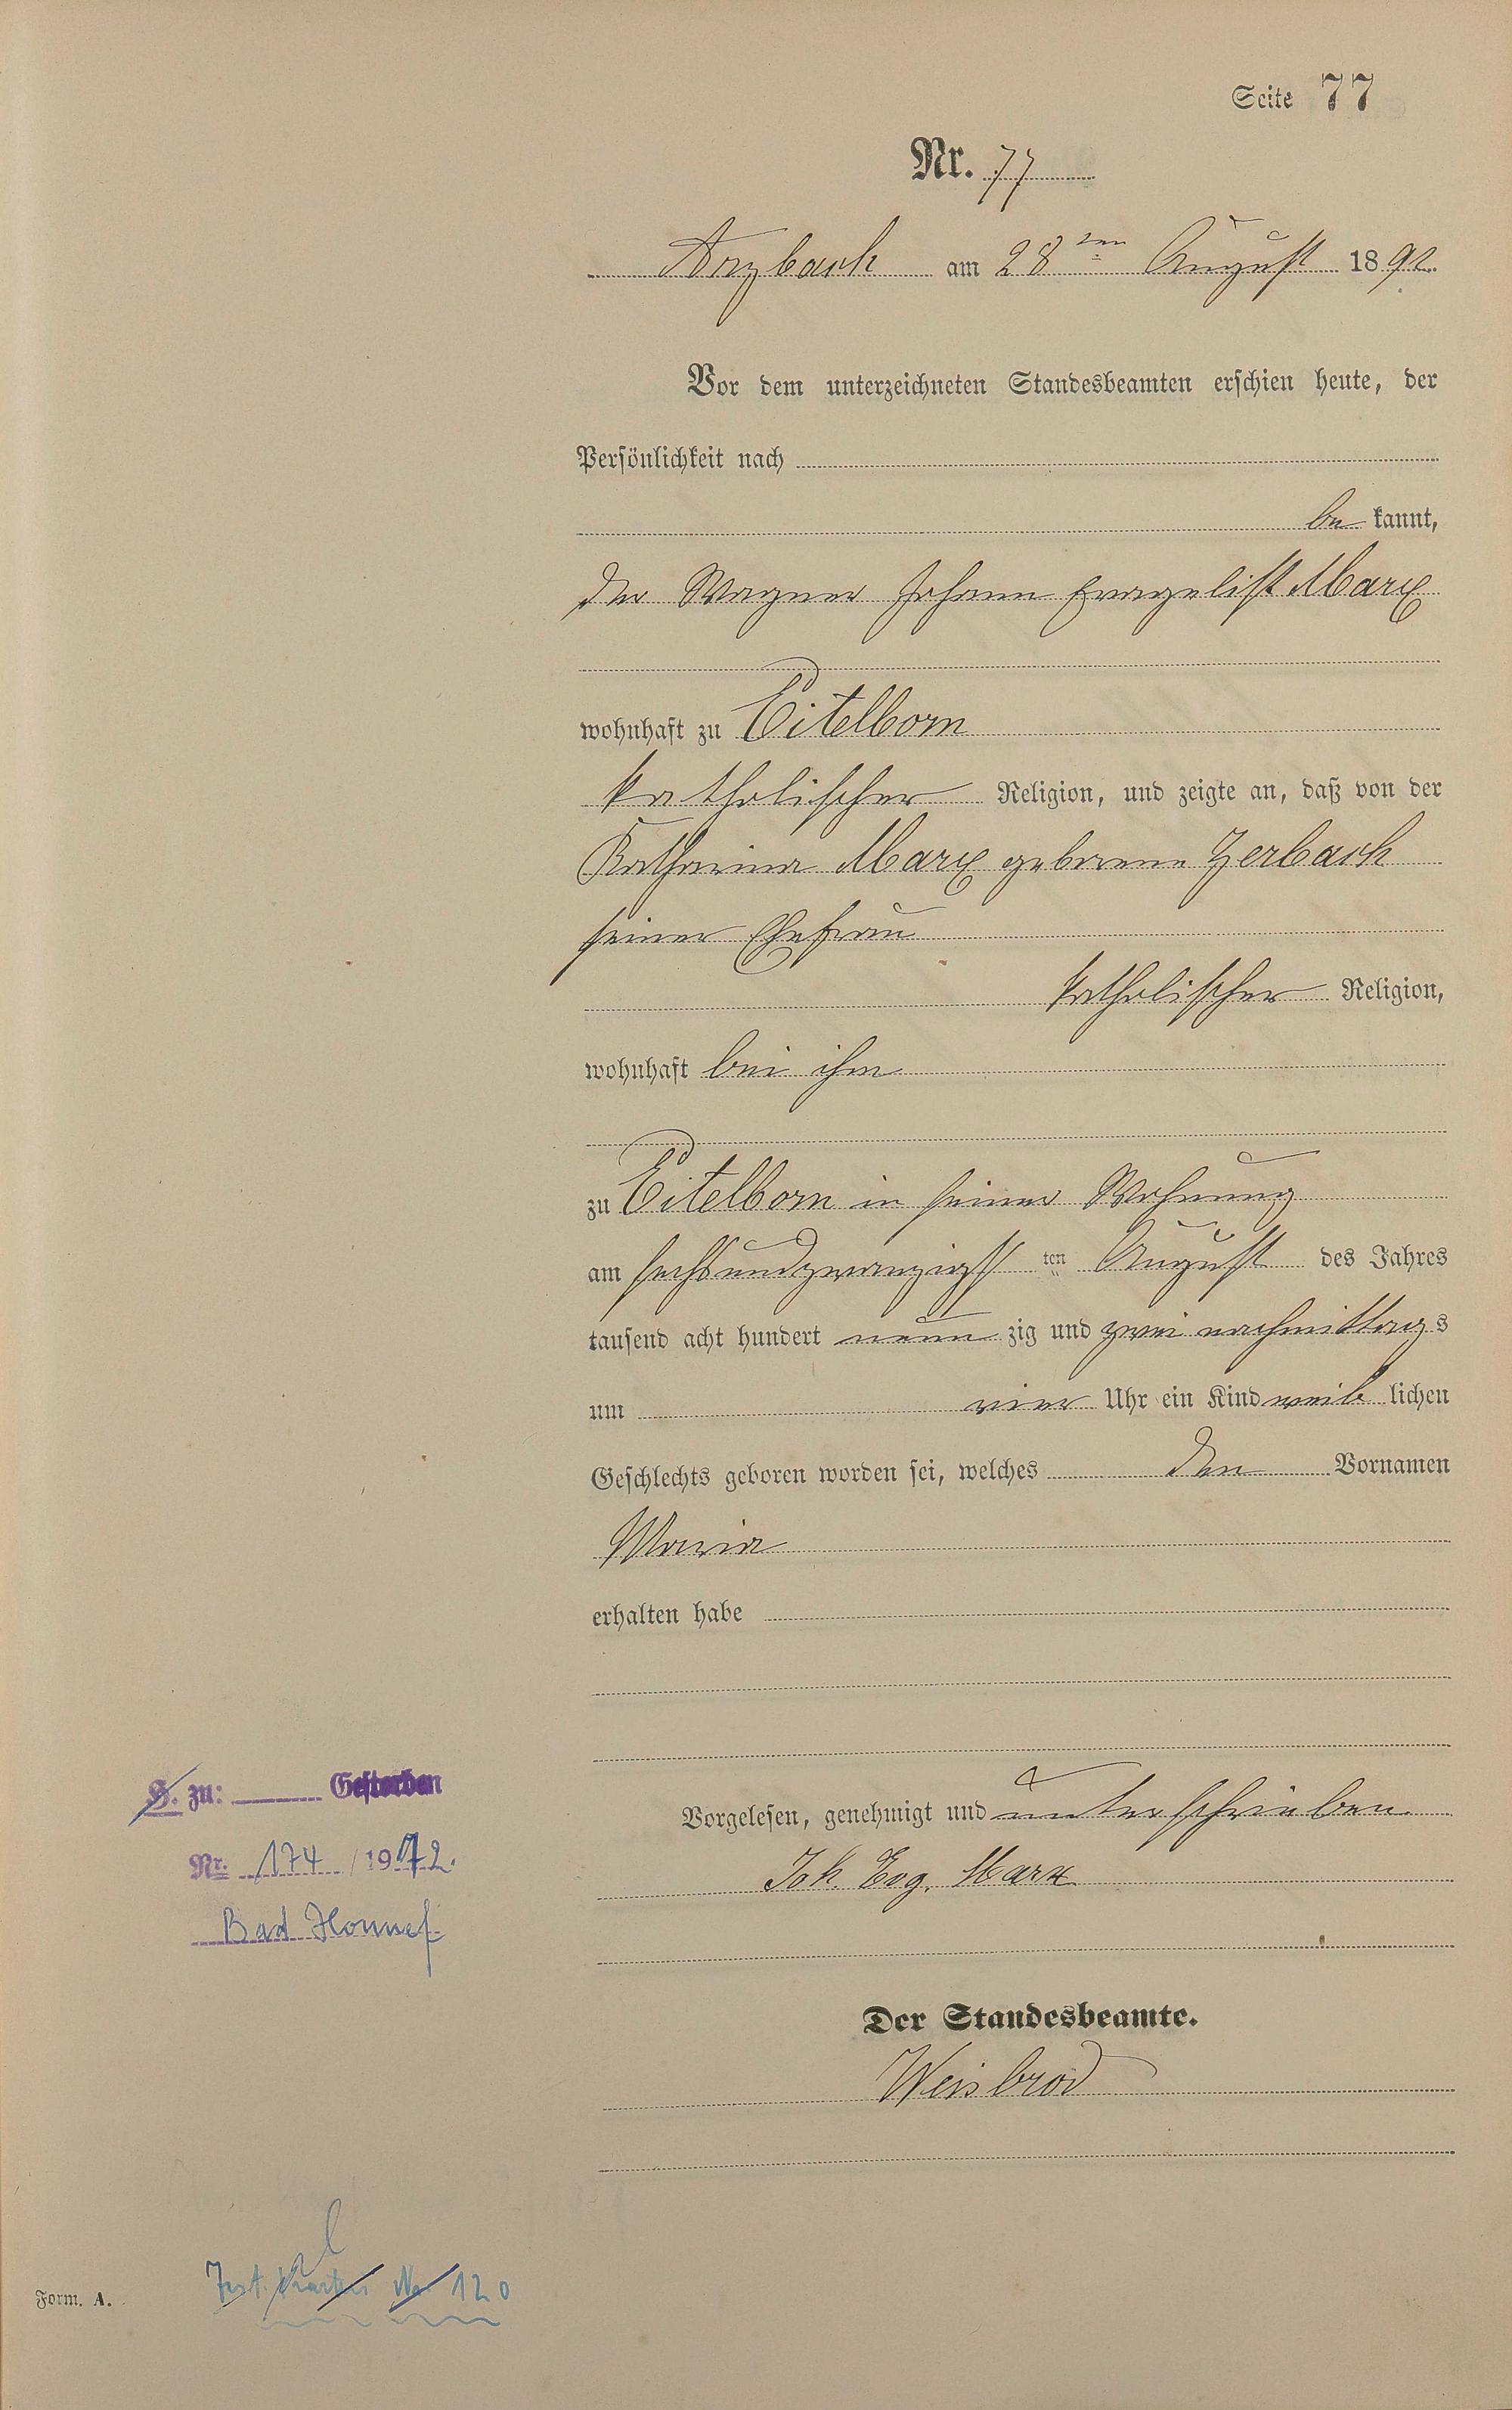 Seite 77
Nr. 77
Arzbach am 28ten August 1892.
Vor dem unterzeichneten Standesbeamten erschien heute, der
Persönlichkeit nach
be kannt,
der Wagner Johann Evangelist Marx
wohnhaft zu Eitelborn
katholischer Religion, und zeigte an, daß von der
Katharina Marx geborene Zerbach
seiner Ehefrau
katholischer Religion,
wohnhaft bei ihm
zu Eitelborn in seiner Wohnung
am sechsundzwanzigst ten August des Jahres
tausend acht hundert neun zig und zwei nachmittags
um vier Uhr ein Kind weib lichen
Geschlechts geboren worden sei, welches den Vornamen
Maria
erhalten habe
Vorgelesen, genehmigt und unterschrieben
Joh. Evg. Marx
Der Standesbeamte.
Weisbrod
H. zu: Gestorben
Nr. 174 / 1972.
Bad Honnef
Test. Kartei No 120
Form. A.